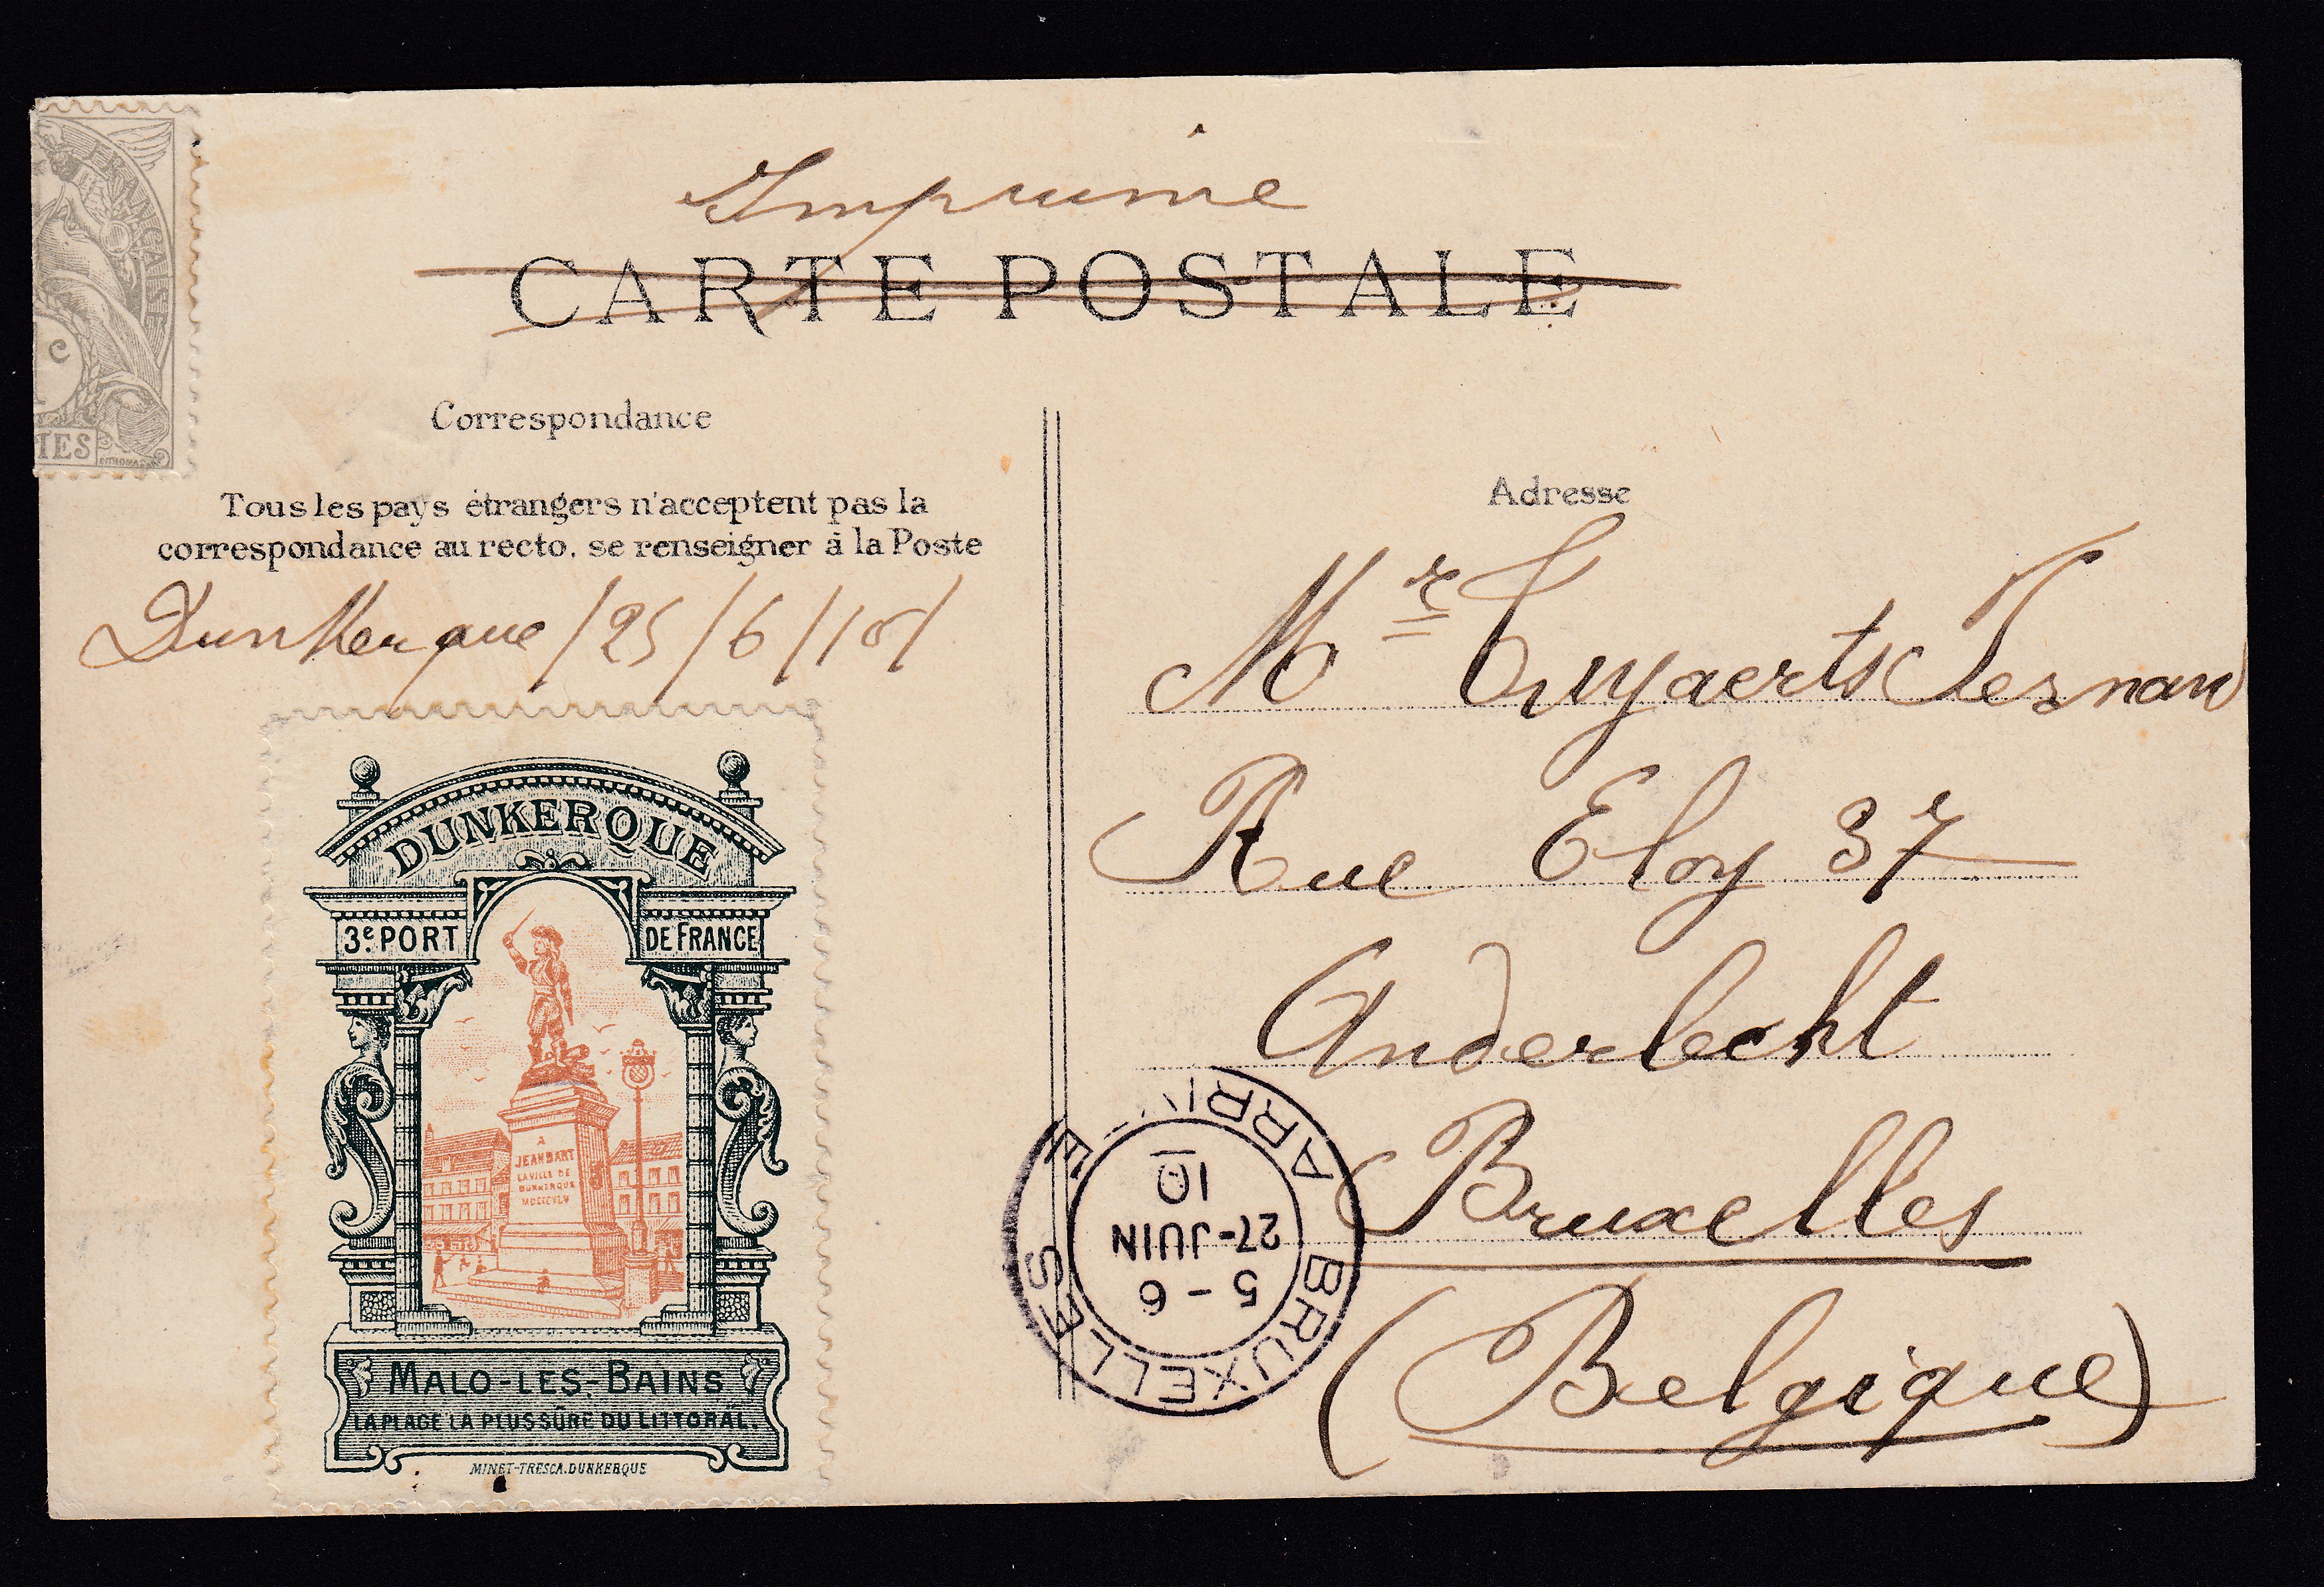 Imprimé
CARTE POSTALE
Correspondance
Tous les pays étrangers n'acceptent pas la
correspondance au recto, se renseigner à la Poste
Dunkerque /25/6/10/
DUNKERQUE
3e PORT DE FRANCE
A
JEAN BART
LA VILLE DE
DUNKERQUE
MDCCCXLV
MALO-LES-BAINS
LA PLAGE LA PLUS SÛRE DU LITTORAL.
MINET-TRESCA.DUNKERQUE
Adresse
Mr Tuyaerts Fernan
Rue Eloy 37
Anderlecht
Bruxelles
(Belgique)
BRUXELLES ARRIV E
5-6
27-JUIN
10
RANÇAISE
c
TES